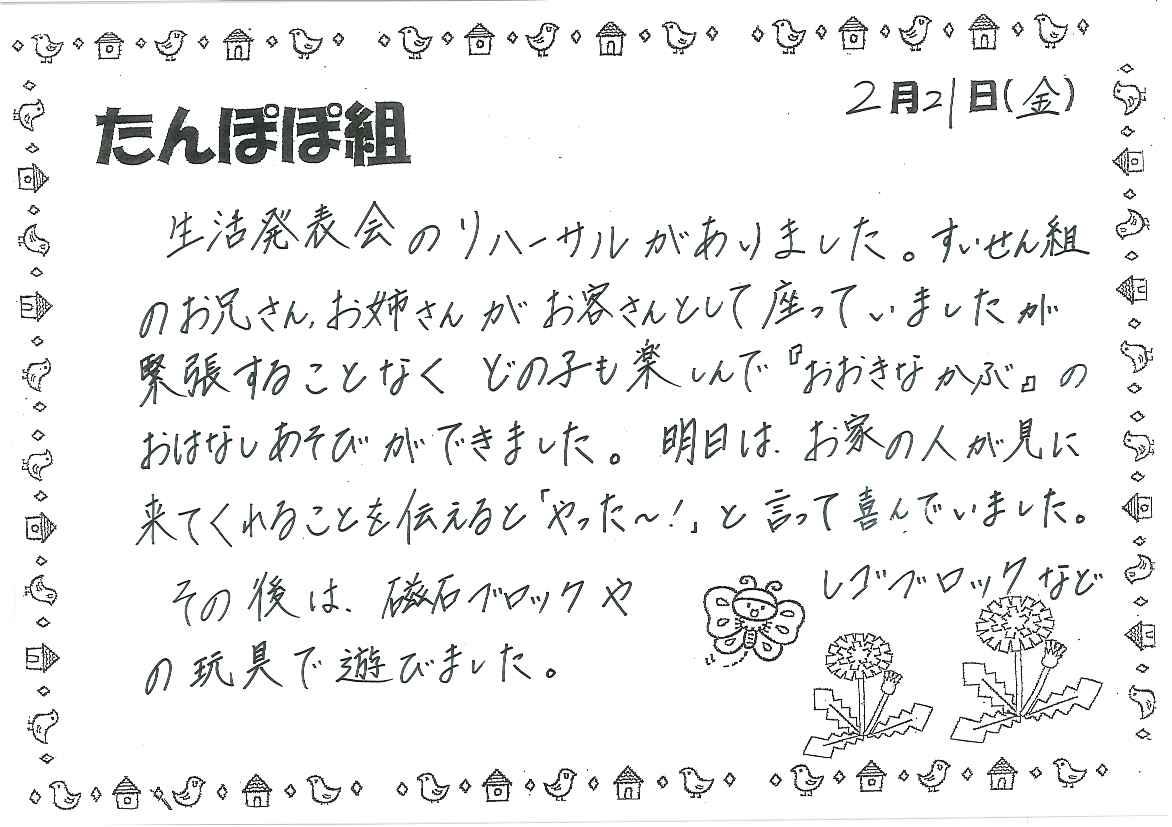 たんぽぽ組
2月21日(金)
生活発表会のリハーサルがありました。すいせん組
のお兄さん、お姉さんがお客さんとして座っていましたが
緊張することなく どの子も楽しんで『おおきなかぶ』の
おはなしあそびができました。明日は、お家の人が見に
来てくれることを伝えると「やった〜!」と言って喜んでいました。
その後は、磁石ブロックや レゴブロックなど
の玩具で遊びました。